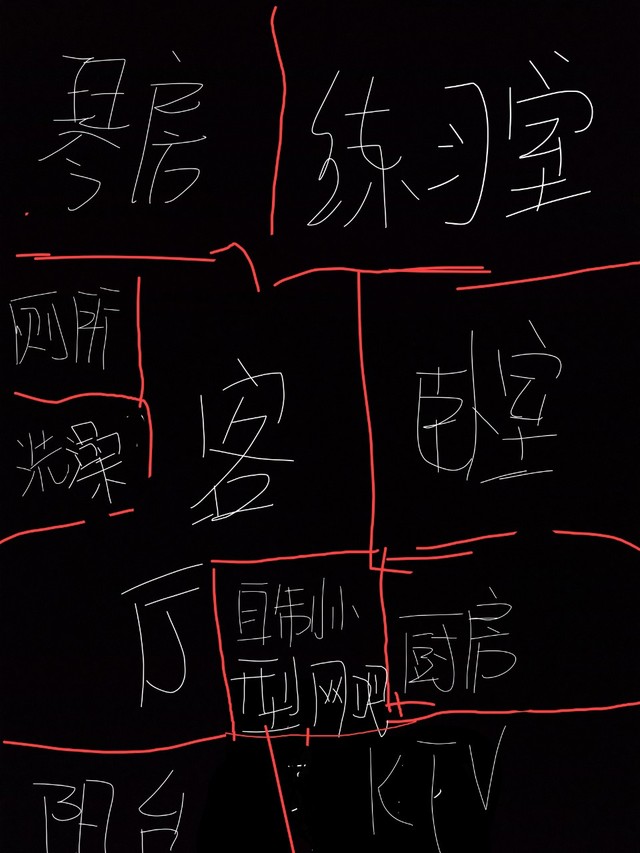 琴房 练习室
厕所
洗澡
客
卧室
厅
自制小
型网吧
厨房
阳台
KTV